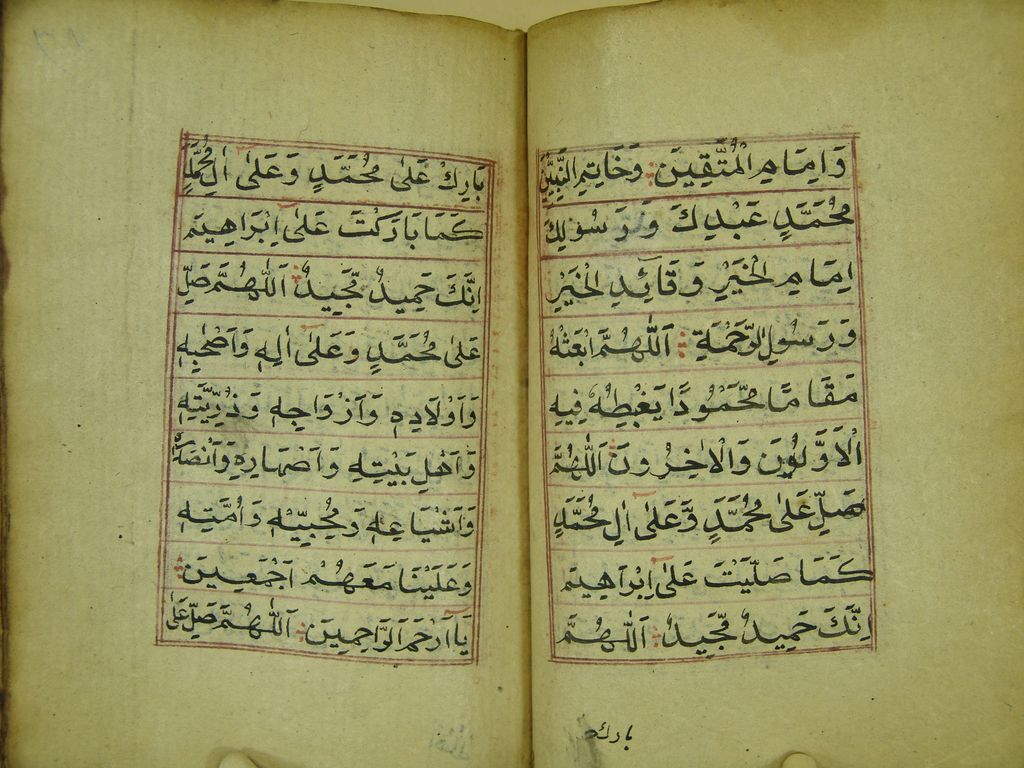 وَاِمَامِ الْمُتَّقِينَ وَخَاتِمِ النَّبِيِّنَ
مُحَمَّدٍ عَبْدِكَ وَرَسُولِكَ
اِمَامِ الْخَيْرِ وَقَائِدِ الْخَيْرِ
وَرَسُولِ الرَّحْمَةِ اَللّٰهُمَّ ابْعَثْهُ
مَقَامًا مَّحْمُودًا يَغْبِطُهٗ فِيهِ
الْاَوَّلُونَ وَالْاٰخِرُونَ اَللّٰهُمَّ
صَلِّ عَلٰى مُحَمَّدٍ وَّعَلٰى اٰلِ مُحَمَّدٍ
كَمَا صَلَّيْتَ عَلٰى اِبْرَاهِيمَ
اِنَّكَ حَمِيدٌ مَّجِيدٌ اَللّٰهُمَّ
بارك
بَارِكْ عَلٰى مُحَمَّدٍ وَعَلٰى اٰلِ مُحَمَّدٍ
كَمَا بَارَكْتَ عَلٰى اِبْرَاهِيمَ
اِنَّكَ حَمِيدٌ مَّجِيدٌ اَللّٰهُمَّ صَلِّ
عَلٰى مُحَمَّدٍ وَعَلٰى اٰلِهٖ وَاَصْحٰبِهٖ
وَاَوْلَادِهٖ وَاَزْوَاجِهٖ وَذُرِّيَّتِهٖ
وَاَهْلِ بَيْتِهٖ وَاَصْهَارِهٖ وَاَنْصَارِهٖ
وَاَشْيَاعِهٖ وَمُحِبِّيْهِ وَاُمَّتِهٖ
وَعَلَيْنَا مَعَهُمْ اَجْمَعِينَ
يَا اَرْحَمَ الرَّاحِمِينَ اَللّٰهُمَّ صَلِّ عَلٰى